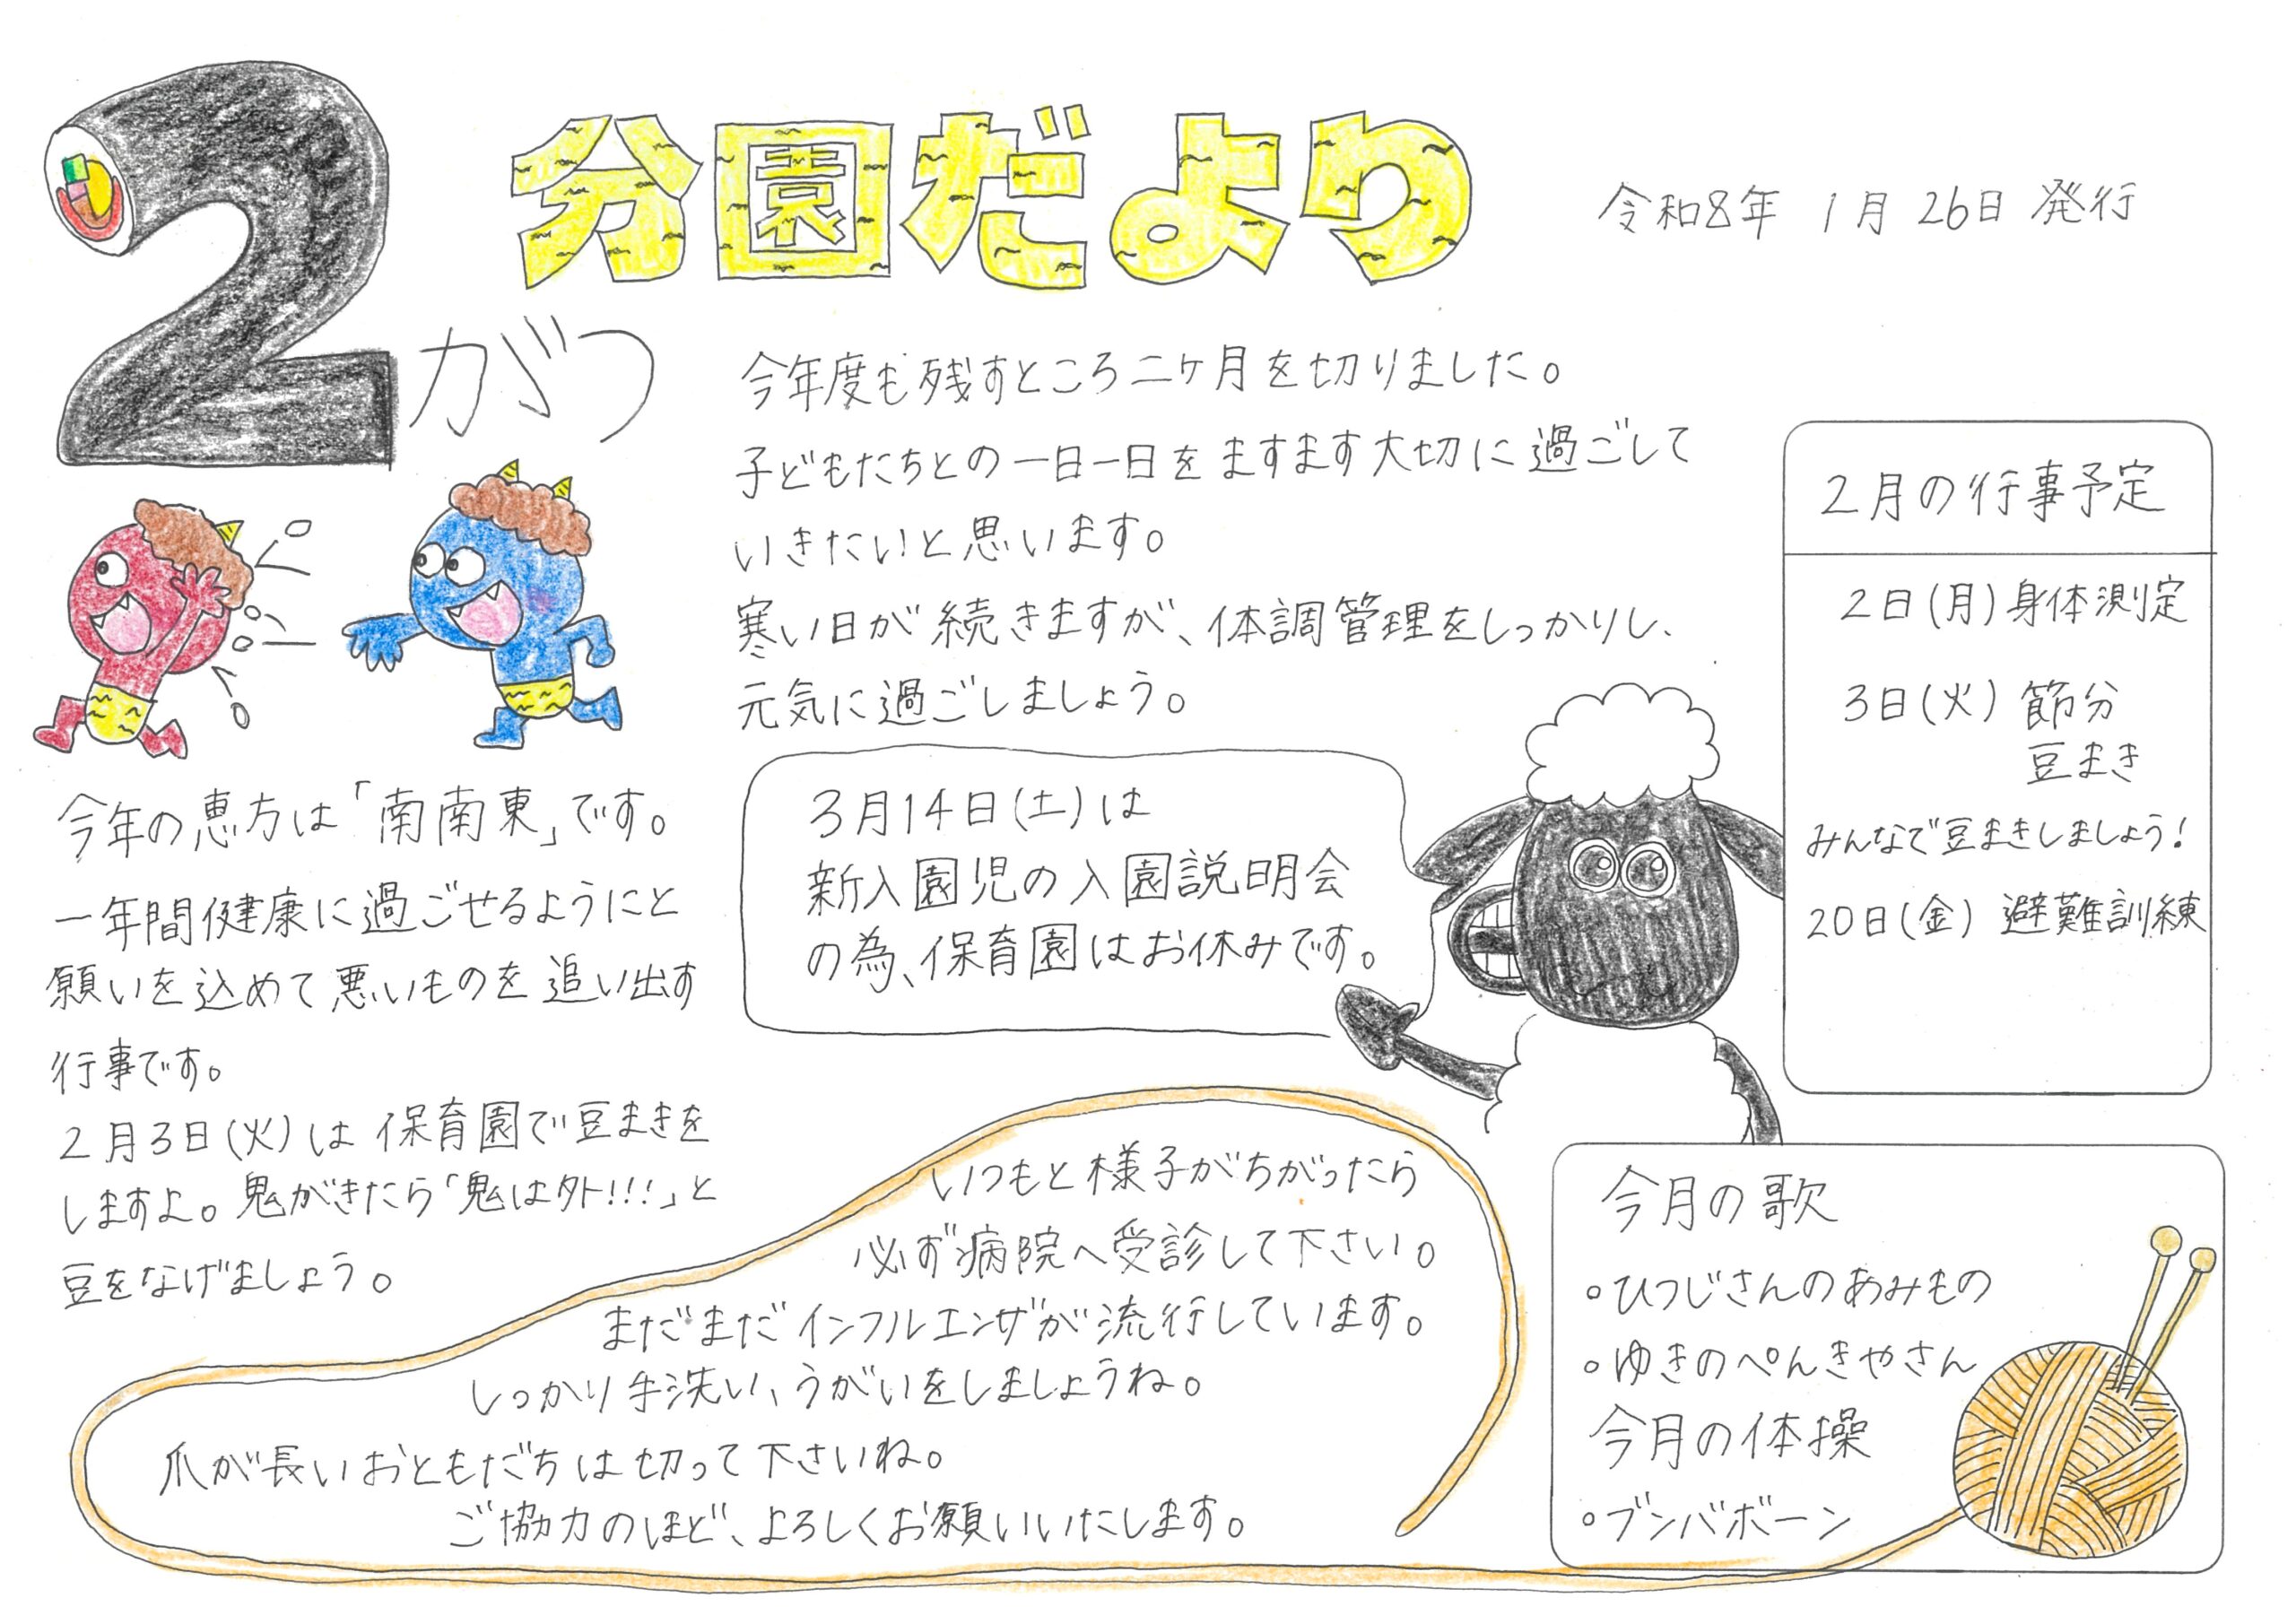 2がつ
分園だより
令和8年 1月 26日 発行
今年度も残すところ二ヶ月を切りました。
子どもたちとの一日一日をますます大切に過ごして
いきたいと思います。
寒い日が続きますが、体調管理をしっかりし、
元気に過ごしましょう。
今年の恵方は「南南東」です。
一年間健康に過ごせるようにと
願いを込めて悪いものを追い出す
行事です。
2月3日(火)は保育園で豆まきを
しますよ。鬼がきたら「鬼は外!!!」と
豆をなげましょう。
3月14日(土)は
新入園児の入園説明会
の為、保育園はお休みです。
2月の行事予定
2日(月)身体測定
3日(火) 節分
豆まき
みんなで豆まきしましょう!
20日(金) 避難訓練
いつもと様子がちがったら
必ず病院へ受診して下さい。
まだまだインフルエンザが流行しています。
しっかり手洗い、うがいをしましょうね。
爪が長いおともだちは切って下さいね。
ご協力のほど、よろしくお願いいたします。
今月の歌
○ひつじさんのあみもの
○ゆきのぺんきやさん
今月の体操
○ブンバボーン